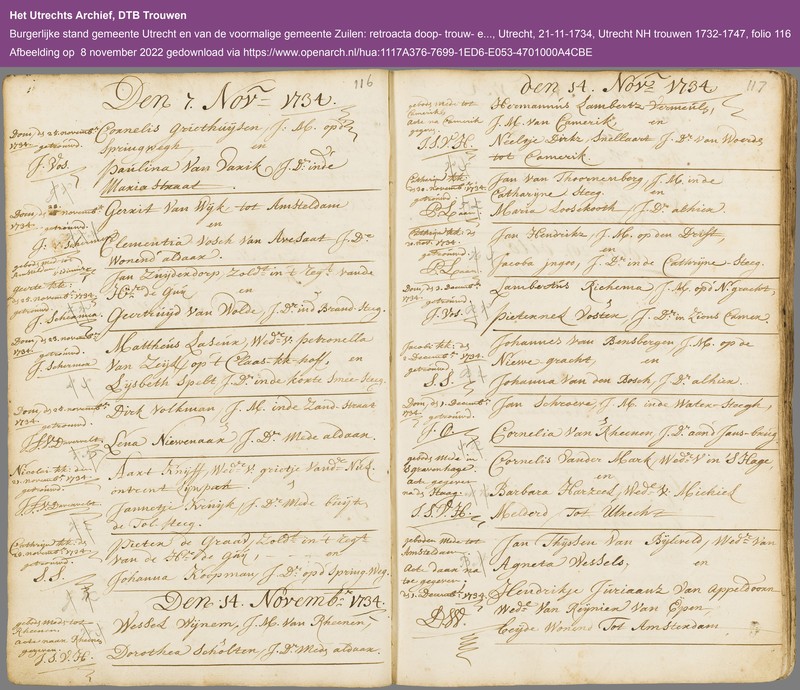 Het Utrechts Archief, DTB Trouwen
Burgerlijke stand gemeente Utrecht en van de voormalige gemeente Zuilen: retroacta doop- trouw- e..., Utrecht, 21-11-1734, Utrecht NH trouwen 1732-1747, folio 116
Afbeelding op 8 november 2022 gedownload via https://www.openarch.nl/hua:1117A376-7699-1ED6-E053-4701000A4CBE
116
Den 7. Nov: 1734.
Dom, den novemb:
1734. getrouwd.
J. Vos.
Cornelis Griethuijsen, J: M. op
Springwegh, en
Paulina Van Davik, J. D: inde
Maria Straat
Dom, de novemb:
1734. getrouwd.
Gerrit Van Wijk tot Amsteldam
en
Clementia Vosch Van Avesaat J. D:
Wonend aldaar.
Jan Zuijderdorp, Zold: in't Reg: vande
H: de Guij en
Geertruijd van Wolde, J. D: in Brand-Steeg.
Geerte kk:
getrouwd.
Dom, de 28. novemb:
1734. getrouwd.
Mattheus Laseur, Wed: v: Petronella
Van Zeijl, op't Claas-kk-hoff, en
Lijsbeth Spelt J. D: inde korte Smee-Steeg.
Dom, de 28. novemb:
1734. getrouwd.
Dirk Volkman J. M. inde Zand-Straat
en
Lena Niewenaar J. D: Mede aldaar.
Nicolai kk: den
novemb: 1734.
getrouwd.
Aart Knijff, Wed: v: grietje Vand:
ontrent
Jannetje Krnijk, J. D: Mede buijt
de Tol-Steeg.
Cathrijn kk: de
novemb: 1734.
getrouwd.
S. S.
Pieter de Graad, Zold: in't Reg:
Van de H: de Guij, en
Johanna Koopman, J. D: op d Spring-Weg.
Den 14. Novemb: 1734.
gebod mede tot
Rheenen.
acte naar Rheenen
gegeven
J. S. V. H.
Wessel Wijnam, J. M. van Rheenen,
en
Dorothea Scholten, J. D: Mede aldaar.
117
den 14. Nov: 1734.
gebod mede tot
Camerik
acte na Camerik
gegeven
J. S. V. H.
Hermannus Lambertz Vermeul,
J. M. van Camerik en
Neeltje Dirks Snellaart J. D: Van Woerd:
tot Camerik.
Catharijn kk:
novemb: 1734.
getrouwd.
Jan Van Thoornenburg, J. M. inde
Catharijne Steeg. en
Maria Looschooth, J. D: alhier.
Cathrijn kk: de
nov: 1734.
getrouwd.
Jan Hendriks, J. M. op den Drift,
en
Jacoba Jnger, J. D: inde Cathrijne-Steeg.
Dom, de Decemb:
1734. getrouwd.
J. Vos.
Lambertus Richema J. M. op d N: gracht,
en
Pieternel Vosten J. D: in Zions Camer.
Jacobi kk: de
Decemb: 1734.
getrouwd.
S. S.
Johannes Van Bensbergen J. M. op de
Niewe gracht, en
Johanna Van den Bosch, J. D: alhier.
Dom, de Decemb:
1734. getrouwd.
Jan Schroeve, J. M. inde Water-Steegh,
en
Cornelia Van Rheenen, J. D: aand Jans-brug
gebod mede in
S gravenhage.
acte gegeven
na de Haag.
J. S. V. H.
Cornelis Vander Mark, Wed: v: in S Hage,
en
Barbara Harkes, Wed: V: Michiel
Melders, Tot Utrecht
geboden mede tot
Amsteldam.
Act. daar na
toe gegeven
de Decemb: 1734.
Jan Thijssen Van Bijleveld, Wed: Van
Agneta Wessels, en
Hendrikje Juriaanz Van Appeldoorn
Wed: Van Reijnier Van Essen,
beijde Wonend Tot Amsterdam